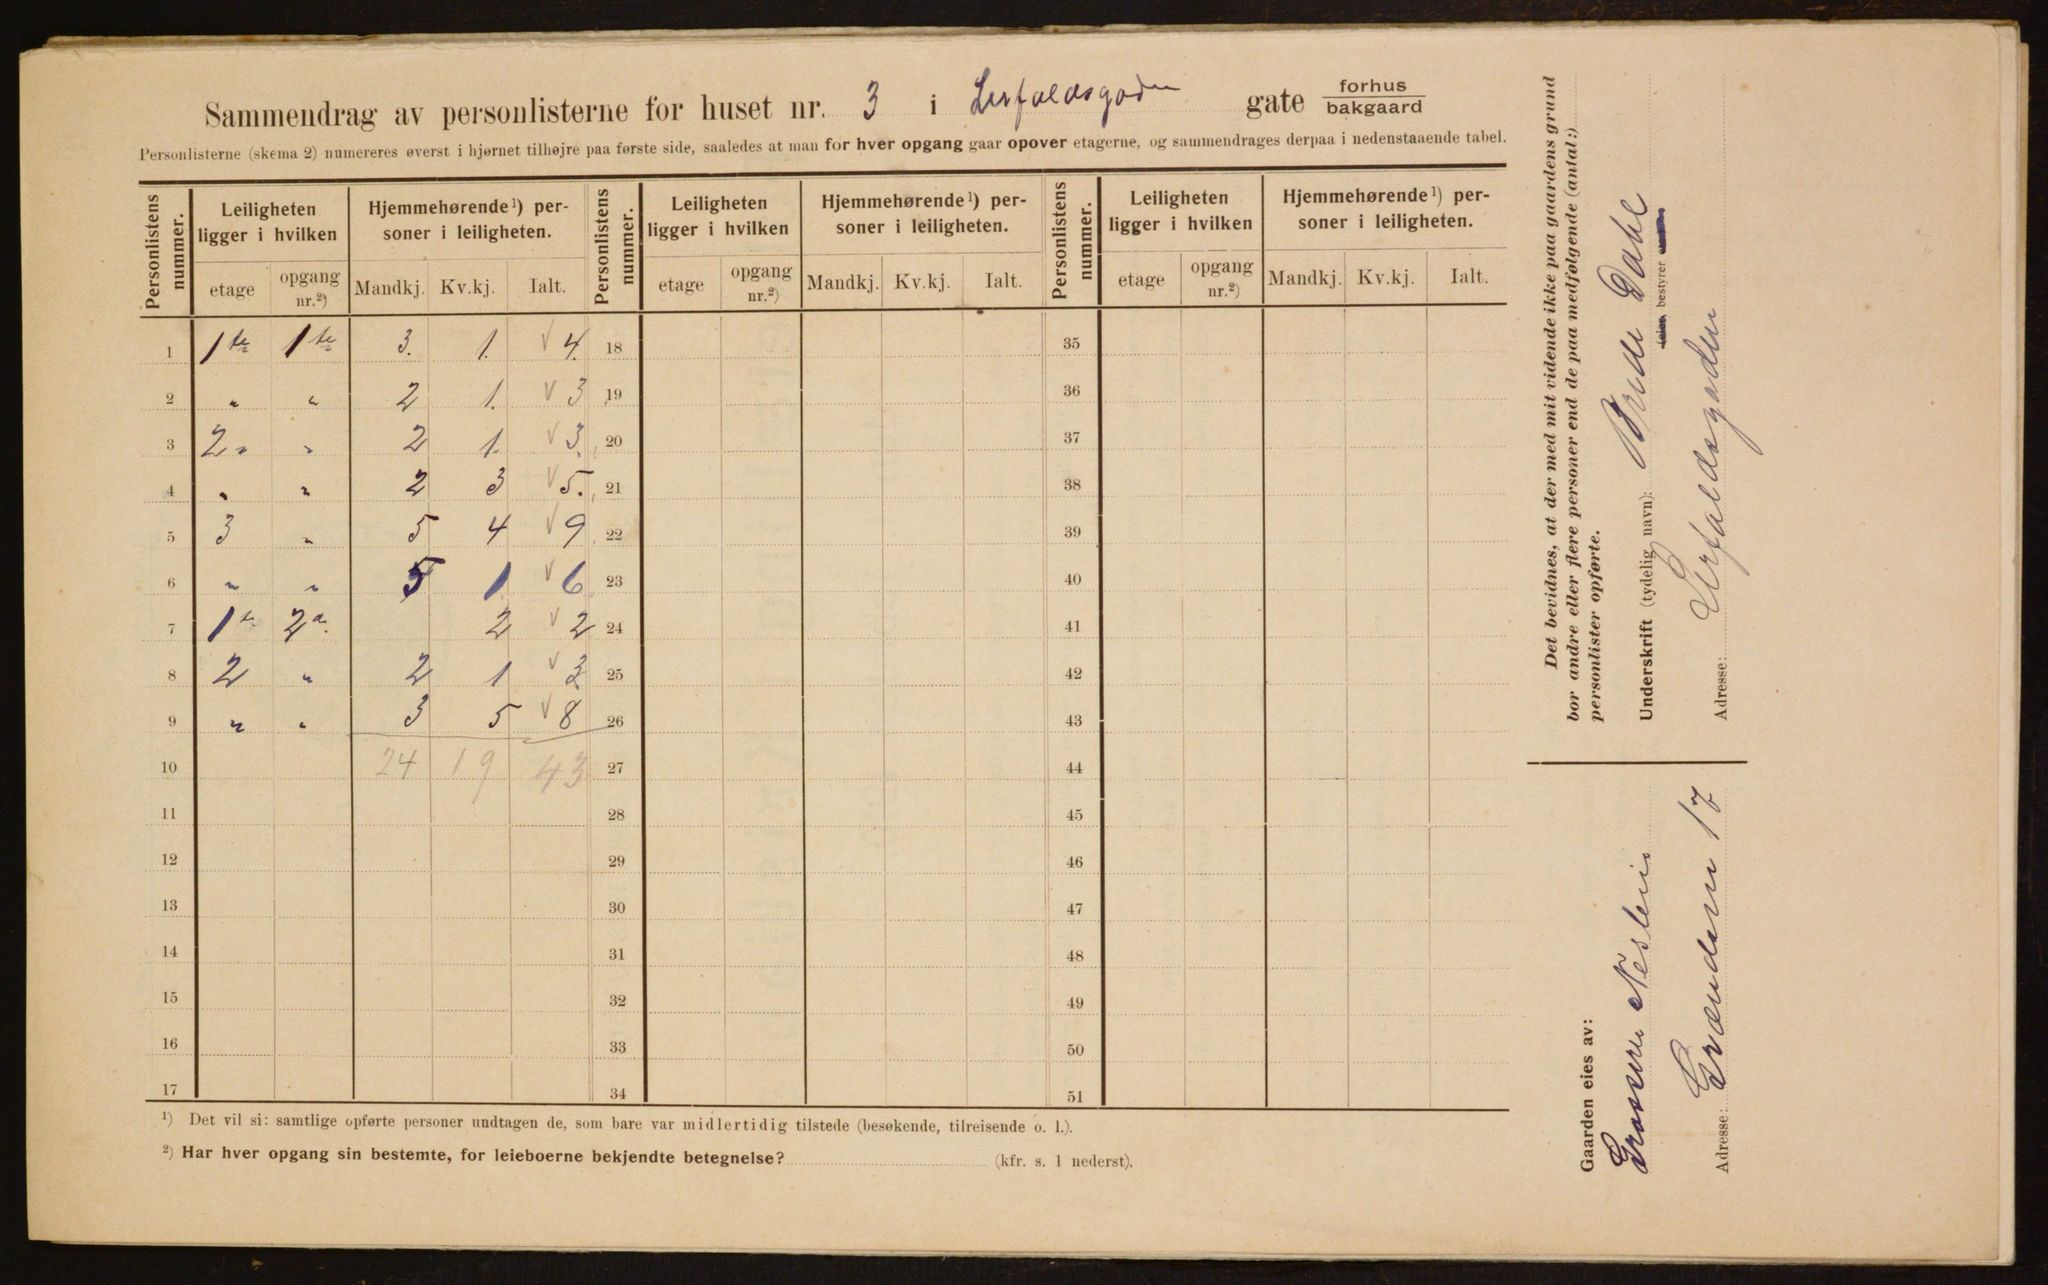 Sammendrag av personlisterne for huset nr. 3 i Lerfaldsgaden gate forhus
bakgaard
Personlisterne (skema 2) numereres øverst i hjørnet tilhøjre paa første side, saaledes at man for hver opgang gaar opover etagerne, og sammendrages derpaa i nedenstaaende tabel.
Personlistens nummer. Leiligheten ligger i hvilken Hjemmehørende¹) personer i leiligheten. Personlistens nummer. Leiligheten ligger i hvilken Hjemmehørende¹) personer i leiligheten. Personlistens nummer. Leiligheten ligger i hvilken Hjemmehørende¹) personer i leiligheten.
etage opgang nr.²) Mandkj. Kv.kj. Ialt. etage opgang nr.²) Mandkj. Kv.kj. Ialt. etage opgang nr.²) Mandkj. Kv.kj. Ialt.
1 1te 1te 3. 1. V 4. 18 35
2 " " 2 1. V 3 19 36
3 2" " 2 1. V 3. 20 37
4 " " 2 3 V 5. 21 38
5 3 " 5 4 V 9 22 39
6 " " 5 1 V 6 23 40
7 1te 2den 2 V 2 24 41
8 2 " 2 1 V 3 25 42
9 " " 3 5 V 8 26 43
10 24 19 43 27 44
11 28 45
12 29 46
13 30 47
14 31 48
15 32 49
16 33 50
17 34 51
¹) Det vil si: samtlige opførte personer undtagen de, som bare var midlertidig tilstede (besøkende, tilreisende o. l.).
²) Har hver opgang sin bestemte, for leieboerne bekjendte betegnelse? (kfr. s. 1 nederst).
Det bevidnes, at der med mit vidende ikke paa gaardens grund
bor andre eller flere personer end de paa medfølgende (antal:)
personlister opførte.
Underskrift (tydelig navn): Dahl
(eier, bestyrer
Adresse: Lerfaldsgaden
Gaarden eies av:
Adresse: Grændsen 17